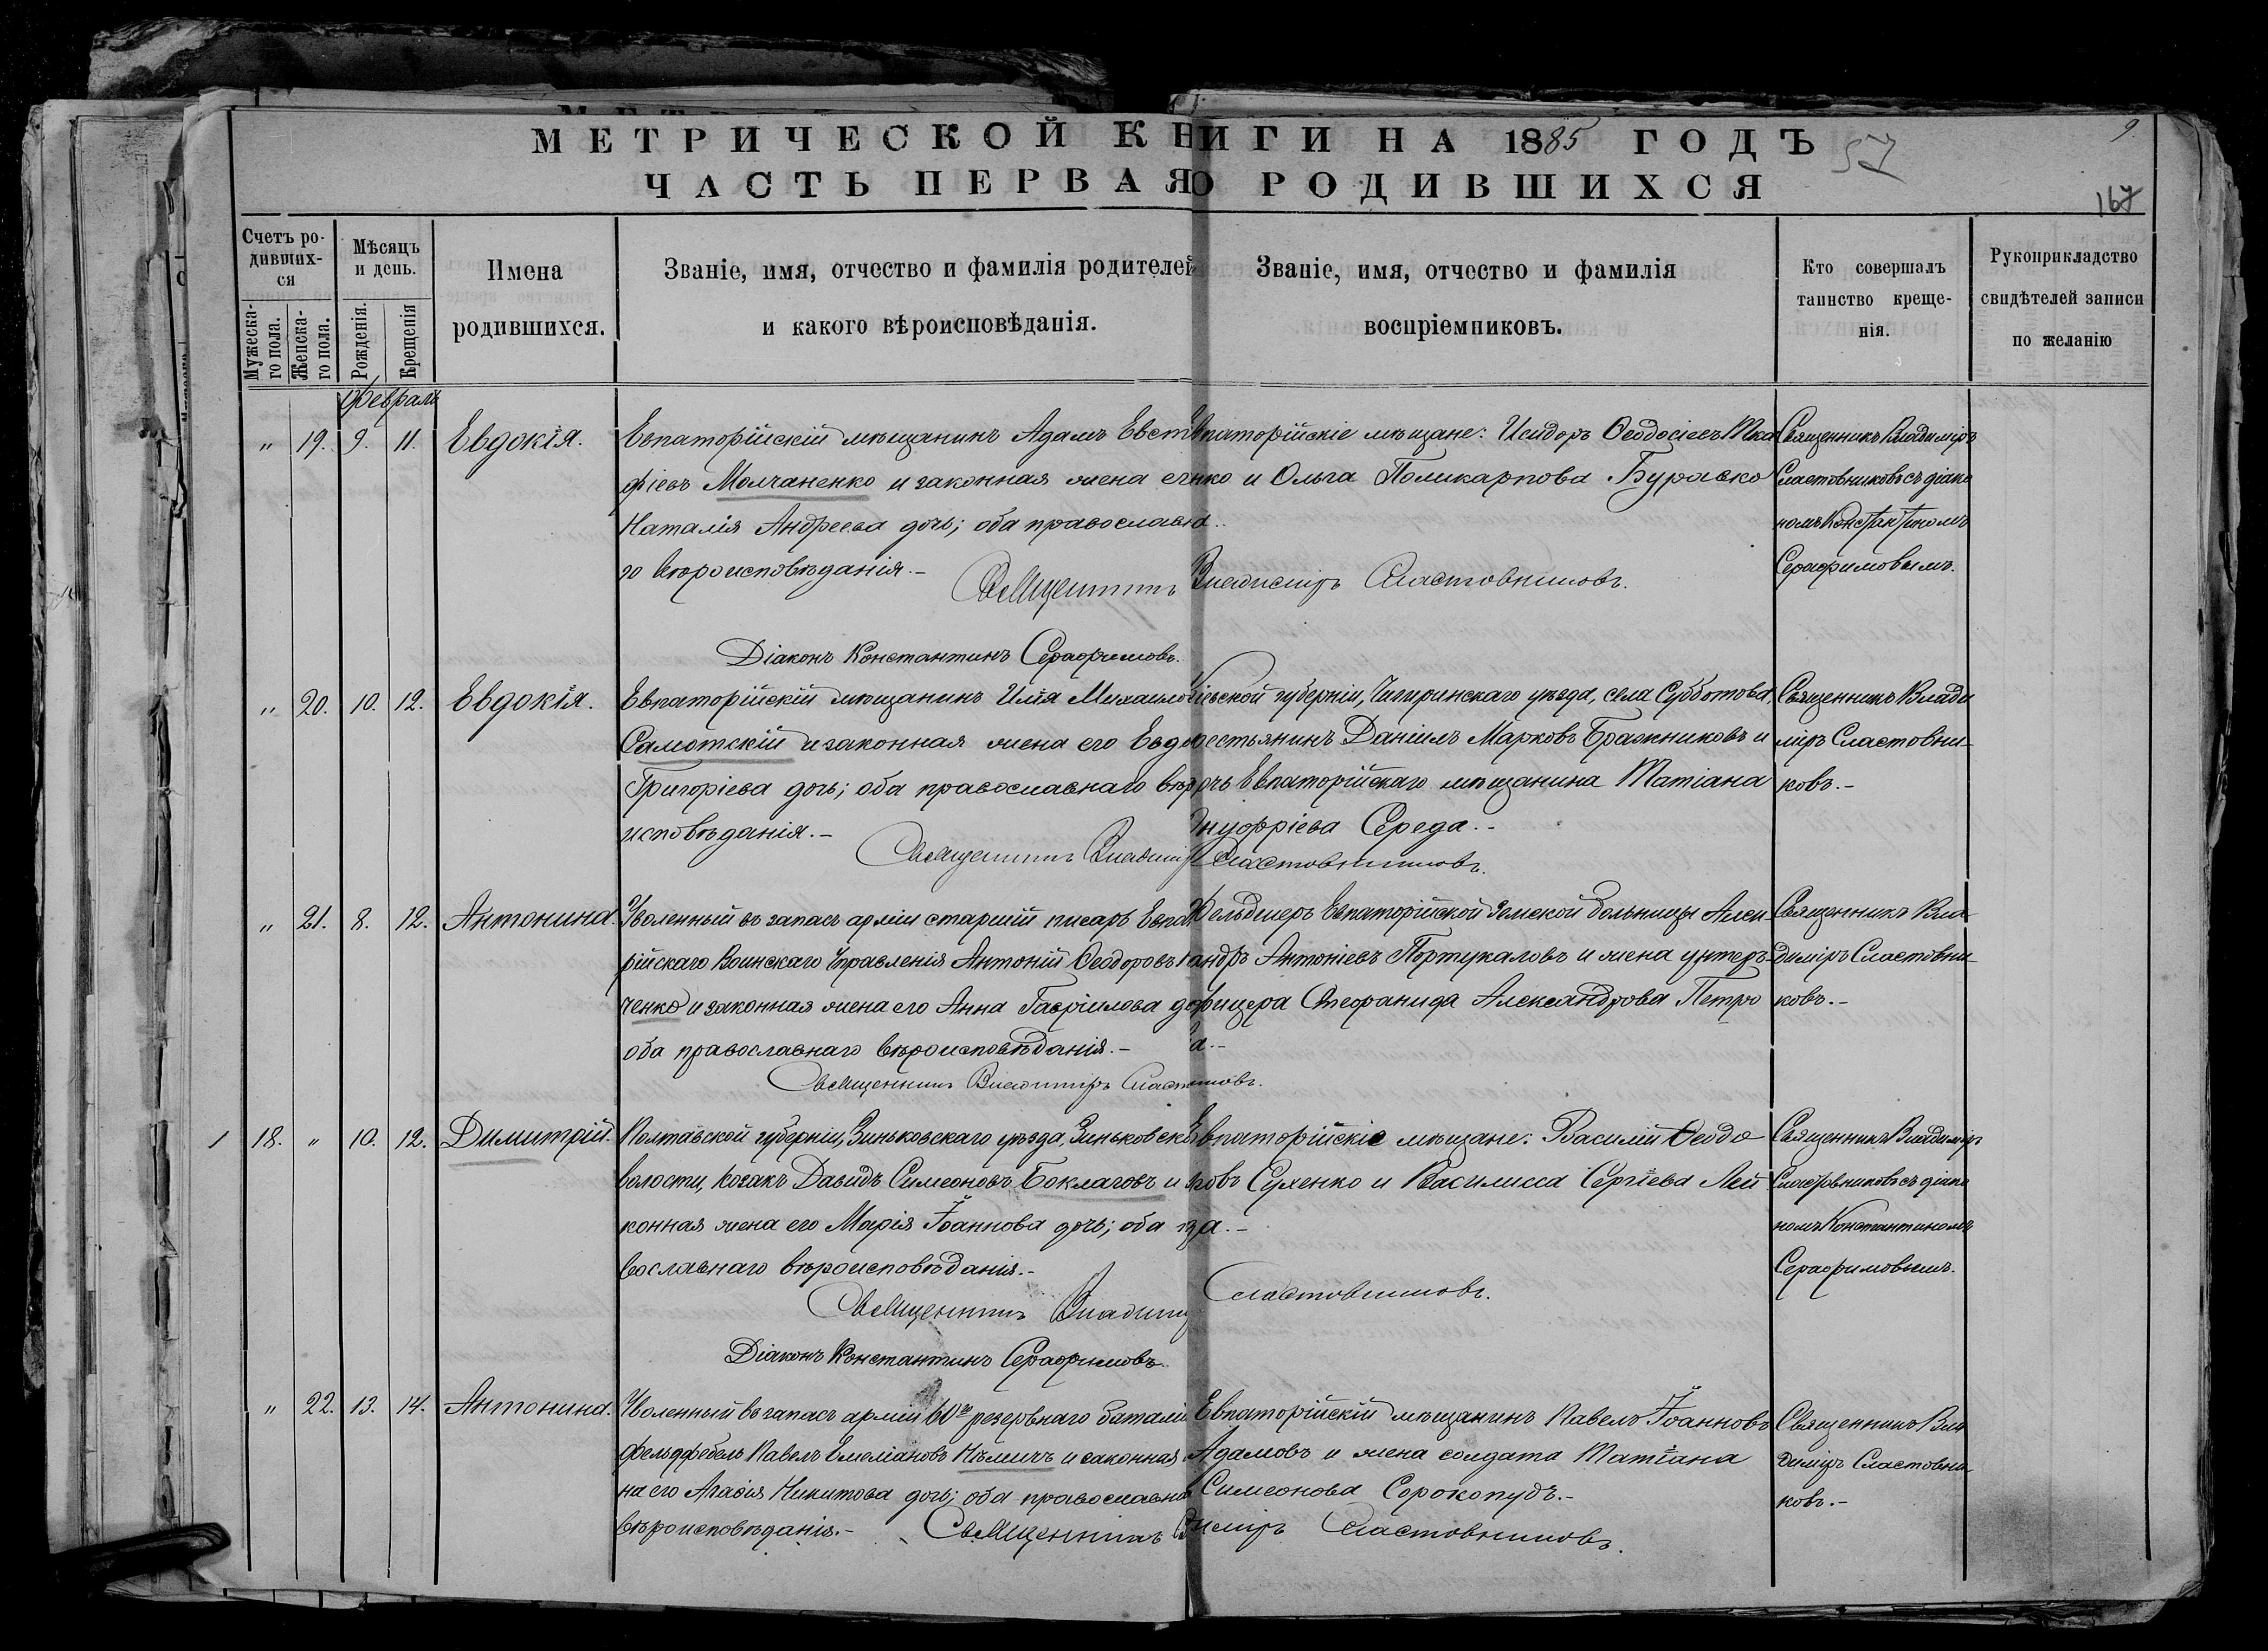 МЕТРИЧЕСКОЙ КНИГИ НА 1885 ГОДЪ
57
9
ЧАСТЬ ПЕРВАЯ О РОДИВШИХСЯ
167
Счетъ ро-
дивших-
ся
Мужеска-
го пола.
Женска-
го пола.
Мѣсяцъ
и день.
Рожденія.
Крещенія
Имена
родившихся.
Званіе, имя, отчество и фамилія родителей
и какого вѣроисповѣданія.
Званіе, имя, отчество и фамилія
воспріемниковъ.
Кто совершалъ
таинство креще-
нія.
Рукоприкладство
свидѣтелей записи
по желанію
Февраль
" 19. 9. 11. Евдокія.
Евпаторійскій мѣщанинъ Адамъ Евст
фіевъ Молчаненко и законная жена ег
Наталія Андреева дочь; оба православна
го вѣроисповѣданія.-
Евпаторійскіе мѣщане: Исидоръ Ѳеодосіевъ Тка
нко и Ольга Поликарпова Бураско
а..
Священникъ Владиміръ
Сластовниковъ съ діако
номъ Константиномъ
Серафимовымъ.
Священникъ Владиміръ Сластовниковъ.
Діаконъ Константинъ Серафимовъ.
" 20. 10. 12. Евдокія.
Евпаторійскій мѣщанинъ Илія Михаило
Самотскій и законная жена его Евдо
Григоріева дочь; оба православнаго вѣр
исповѣданія.-
іевской губерніи, Чигиринскаго уѣзда, села Субботова,
рестьянинъ Даніилъ Марковъ Бражниковъ и
очь Евпаторійскаго мѣщанина Татіана
Онуфріева Середа.-
Священникъ Влади
міръ Сластовни-
ковъ.-
Священникъ Владимір Сластовниковъ.
" 21. 8. 12. Антонина.
Уволенный въ запасъ арміи старшій писарь Евпа
рійскаго Воинскаго Управленія Антоній Ѳеодоровъ
ченко и законная жена его Анна Гавріилова до
оба православнаго вѣроисповѣданія.-
Фельдшеръ Евпаторійской Земской больницы Алек-
андръ Антоніевъ Португаловъ и жена унтеръ-
фицера Стефанида Александрова Петро
а.-
Священникъ Вла-
диміръ Сластовни-
ковъ.-
Священникъ Владиміръ Сластовниковъ.
1 18. " 10. 12. Димитрій.
Полтавской губерніи, Зиньковскаго уѣзда, Зиньковско
волости, козакъ Давидъ Симеоновъ Боклаговъ и
конная жена его Марія Іоаннова дочь; оба п
вославнаго вѣроисповѣданія.-
Евпаторійскіе мѣщане: Василій Ѳеодо
ровъ Сухенко и Василисса Сергіева Лей
а.-
Священникъ Владиміръ
Сластовниковъ съ діако
номъ Константиномъ
Серафимовымъ.
Священникъ Владимі Сластовниковъ.
Діаконъ Константинъ Серафимовъ.
" 22. 13. 14. Антонина.
Уволенный въ запасъ арміи 60го резервнаго баталі
фельдфебель Павелъ Емеліановъ Нѣмичъ и законная
на его Агафія Никитова дочь; оба православна
вѣроисповѣданія.-
Евпаторійскій мѣщанинъ Павелъ Іоанновъ
Адамовъ и жена солдата Татіана
Симеонова Сорокопудъ.-
Священникъ Вла
диміръ Сластовни
ковъ.-
Священникъ диміръ Сластовниковъ.